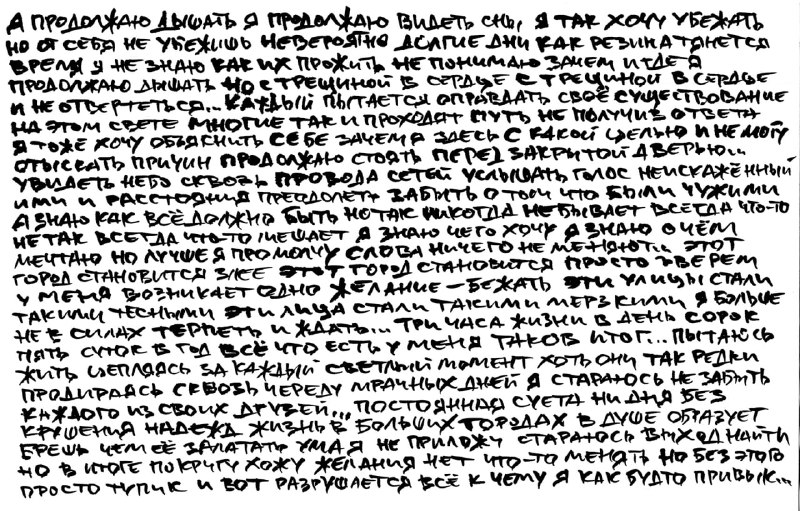 А ПРОДОЛЖАЮ ДЫШАТЬ Я ПРОДОЛЖАЮ ВИДЕТЬ СНЫ, Я ТАК ХОЧУ УБЕЖАТЬ
НО ОТ СЕБЯ НЕ УБЕЖИШЬ НЕВЕРОЯТНО ДОЛГИЕ ДНИ КАК РЕЗИНА ТЯНЕТСЯ
ВРЕМЯ Я НЕ ЗНАЮ КАК ИХ ПРОЖИТЬ НЕ ПОНИМАЮ ЗАЧЕМ И ГДЕ Я
ПРОДОЛЖАЮ ДЫШАТЬ НО С ТРЕЩИНОЙ В СЕРДЦЕ С ТРЕЩИНОЙ В СЕРДЦЕ
И НЕ ОТВЕРТЕТЬСЯ... КАЖДЫЙ ПЫТАЕТСЯ ОПРАВДАТЬ СВОЁ СУЩЕСТВОВАНИЕ
НА ЭТОМ СВЕТЕ МНОГИЕ ТАК И ПРОХОДЯТ ПУТЬ НЕ ПОЛУЧИВ ОТВЕТА
Я ТОЖЕ ХОЧУ ОБЪЯСНИТЬ СЕБЕ ЗАЧЕМ Я ЗДЕСЬ С КАКОЙ ЦЕЛЬЮ И НЕ МОГУ
ОТЫСКАТЬ ПРИЧИН ПРОДОЛЖАЮ СТОЯТЬ ПЕРЕД ЗАКРЫТОЙ ДВЕРЬЮ...
УВИДЕТЬ НЕБО СКВОЗЬ ПРОВОДА СЕТЕЙ УСЛЫШАТЬ ГОЛОС НЕИСКАЖЁННЫЙ
ИМИ И РАССТОЯНИЯ ПРЕОДОЛЕТЬ ЗАБЫТЬ О ТОМ ЧТО БЫЛИ ЧУЖИМИ
Я ЗНАЮ КАК ВСЁ ДОЛЖНО БЫТЬ НО ТАК НИКОГДА НЕ БЫВАЕТ ВСЕГДА ЧТО-ТО
НЕ ТАК ВСЕГДА ЧТО-ТО МЕШАЕТ Я ЗНАЮ ЧЕГО ХОЧУ Я ЗНАЮ О ЧЁМ
МЕЧТАЮ НО ЛУЧШЕ Я ПРОМОЛЧУ СЛОВА НИЧЕГО НЕ МЕНЯЮТ... ЭТОТ
ГОРОД СТАНОВИТСЯ ЗЛЕЕ ЭТОТ ГОРОД СТАНОВИТСЯ ПРОСТО ЗВЕРЕМ
У МЕНЯ ВОЗНИКАЕТ ОДНО ЖЕЛАНИЕ – БЕЖАТЬ ЭТИ УЛИЦЫ СТАЛИ
ТАКИМИ ТЕСНЫМИ ЭТИ ЛИЦА СТАЛИ ТАКИМИ МЕРЗКИМИ Я БОЛЬШЕ
НЕ В СИЛАХ ТЕРПЕТЬ И ЖДАТЬ... ТРИ ЧАСА ЖИЗНИ В ДЕНЬ СОРОК
ПЯТЬ СУТОК В ГОД ВСЁ ЧТО ЕСТЬ У МЕНЯ ТАКОВ ИТОГ... ПЫТАЮСЬ
ЖИТЬ ЦЕПЛЯЯСЬ ЗА КАЖДЫЙ СВЕТЛЫЙ МОМЕНТ ХОТЬ ОНИ ТАК РЕДКИ
ПРОДИРАЯСЬ СКВОЗЬ ЧЕРЕДУ МРАЧНЫХ ДНЕЙ Я СТАРАЮСЬ НЕ ЗАБЫТЬ
КАЖДОГО ИЗ СВОИХ ДРУЗЕЙ... ПОСТОЯННАЯ СУЕТА НИ ДНЯ БЕЗ
КРУШЕНИЯ НАДЕЖД ЖИЗНЬ В БОЛЬШИХ ГОРОДАХ В ДУШЕ ОБРАЗУЕТ
БРЕШЬ ЧЕМ ЕЁ ЗАЛАТАТЬ УМА Я НЕ ПРИЛОЖУ СТАРАЮСЬ ВЫХОД НАЙТИ
НО В ИТОГЕ ПО КРУГУ ХОЖУ ЖЕЛАНИЯ НЕТ ЧТО-ТО МЕНЯТЬ НО БЕЗ ЭТОГО
ПРОСТО ТУПИК И ВОТ РАЗРУШАЕТСЯ ВСЁ К ЧЕМУ Я КАК БУДТО ПРИВЫК...